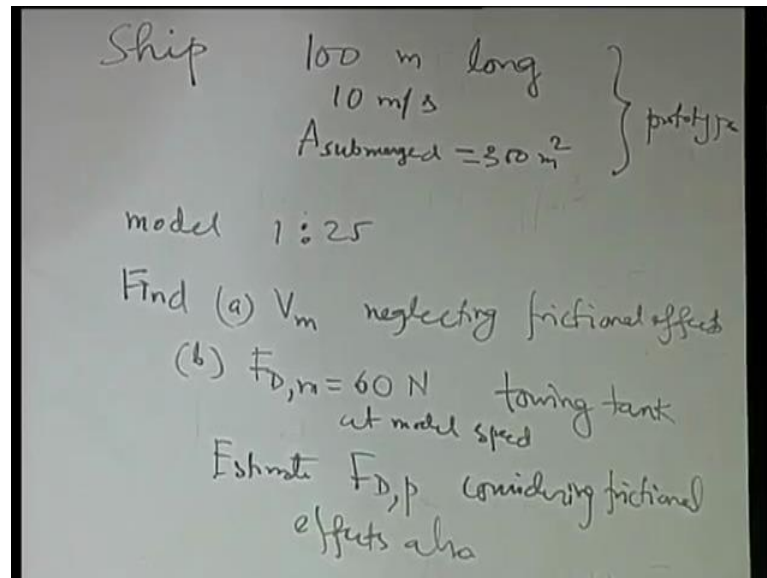 Ship 100 m long
10 m/s
A submerged = 300 m²
prototype
model 1:25
Find (a) Vm neglecting frictional effects
(b) F_D,m = 60 N towing tank
at model speed
Estimate F_D,p considering frictional
effects also